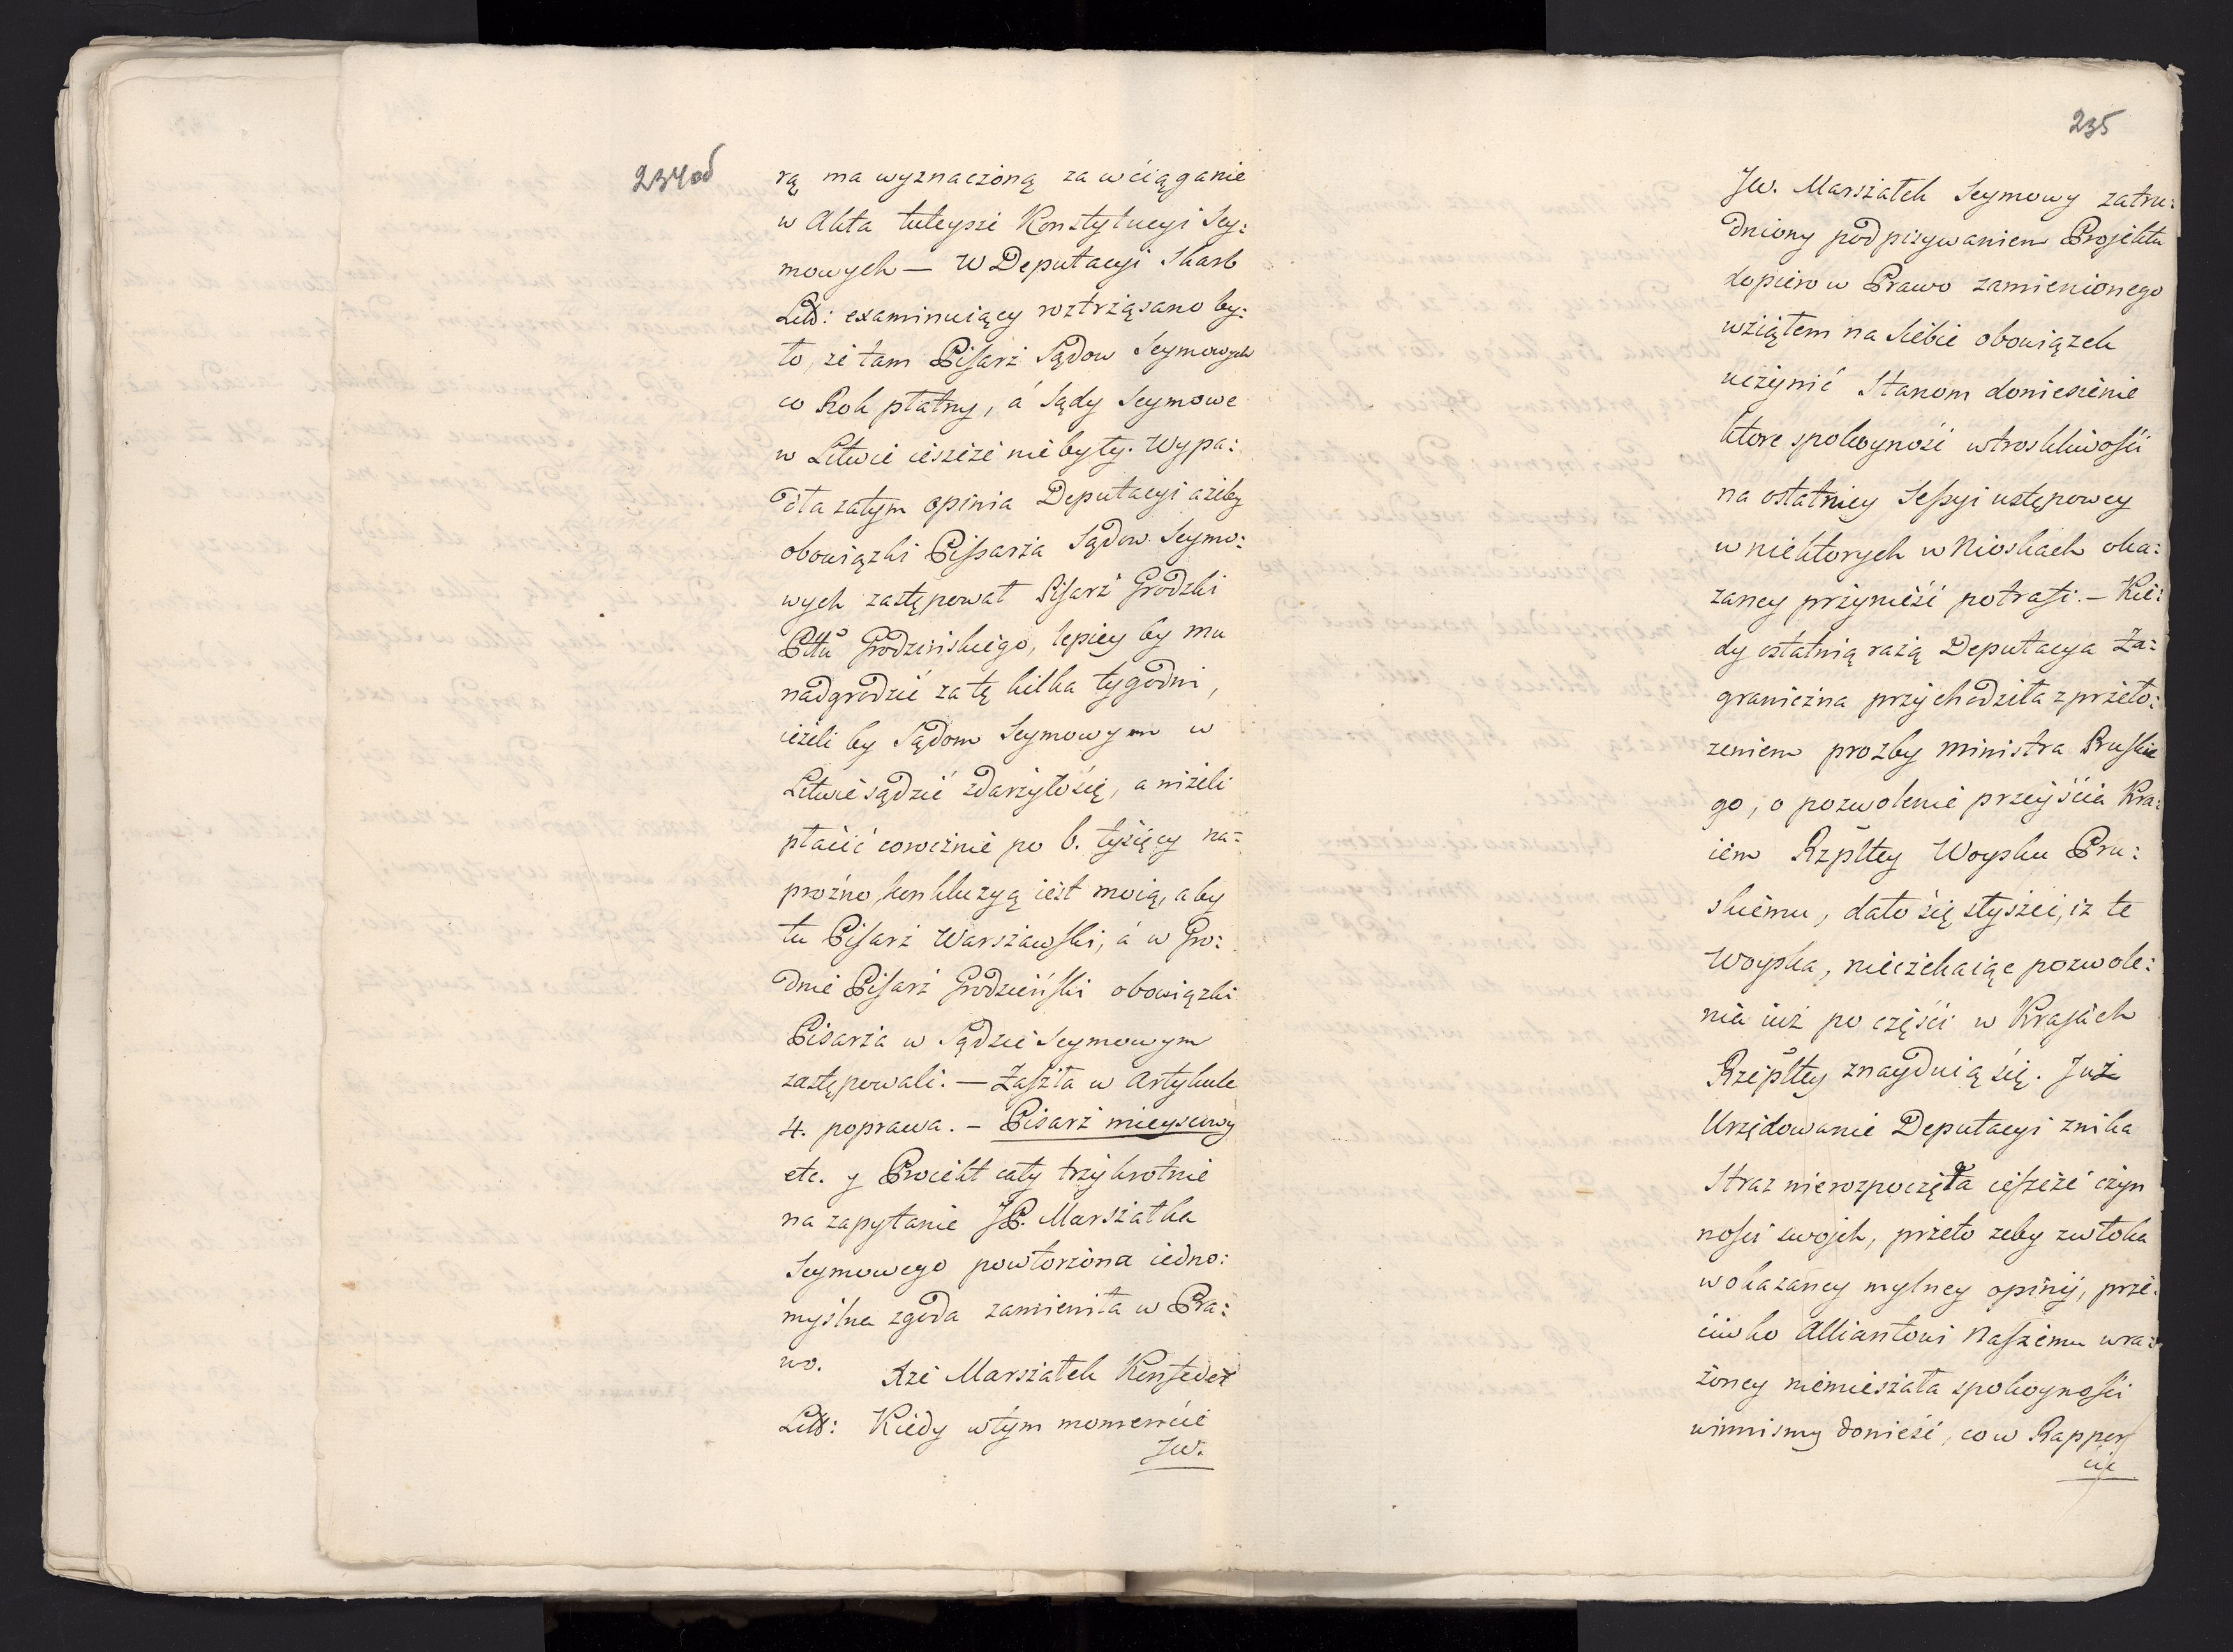 234od
rą ma wyznaczoną za wciąganie
w Akta tuteysze Konstytucyi Sey:
mowych — W Deputacyi Skarb
Litt: examinuiący roztrżąsano by:
ło, że tam Pisarż Sądow Seymowych
co Rok płatny, á Sądy Seymowe
w Litwie ieszcze nie były. Wypa:
dła zatym opinia Deputacyi ażeby
obowiązki Pissarża Sądow Seymo:
wych zastępował Pisarż Grodzki
Pttu Grodzinskiego, lepiey by mu
nadgrodzić za tę kilka tygodni,
ieżeli by Sądom Seymowym w
Litwie sądzić zdarżyło się, a niżeli
płacić corocznie po 6. tysięcy na:
prożno, konkluzyą iest moią, aby
tu Pisarż Warszawski, á w Gro:
dnie Pisarż Grodzieński obowiązki
Pisarża w Sądzie Seymowym
zastępowali. — Zaszła w Artykule
4. poprawa. — Pisarż mieyscowy
etc. y Proiekt cały trzykrotnie
na zapytanie JP. Marszałka
Seymowego powtorzona iedno:
myślna zgoda zamieniła w Pra:
wo. Xże Marszałek Konfeder
Litt: Kiedy w tym momencie
JW.
235
JW. Marszałek Seymowy zatru:
dniony podpisywaniem Projektu
dopiero w Prawo zamienionego
wziąłem na Siebie obowiązek
uczynić Stanom doniesienie
ktore spokoyność w troskliwości
na ostatniey Sessyi ustępowey
w niektorych w Nioskach oka:
zaney przynieść potrafi. — Kie:
dy ostatnią rażą Deputacya Za:
graniczna przychodziła z przeło:
żeniem prożby Ministra Pruskie
go, o pozwolenie przeyścia Kra:
iem Rzpltey Woysku Pru:
skiemu, dało się słyszeć, iż te
Woyska, nieczekaiąc pozwole:
nia iuż po części w Krajach
Rzepltey znayduią się. Już
Urzędowanie Deputacyi znika
Straz nierozpoczęła ieszcze czyn
ności swojch, przeto żeby zwłoka
w okazaney mylney opinij, prze:
ciwko Alliantowi Naszemu wra:
żoney niemieszała spokoyności
winnismy donieść, co w Rappor
cie